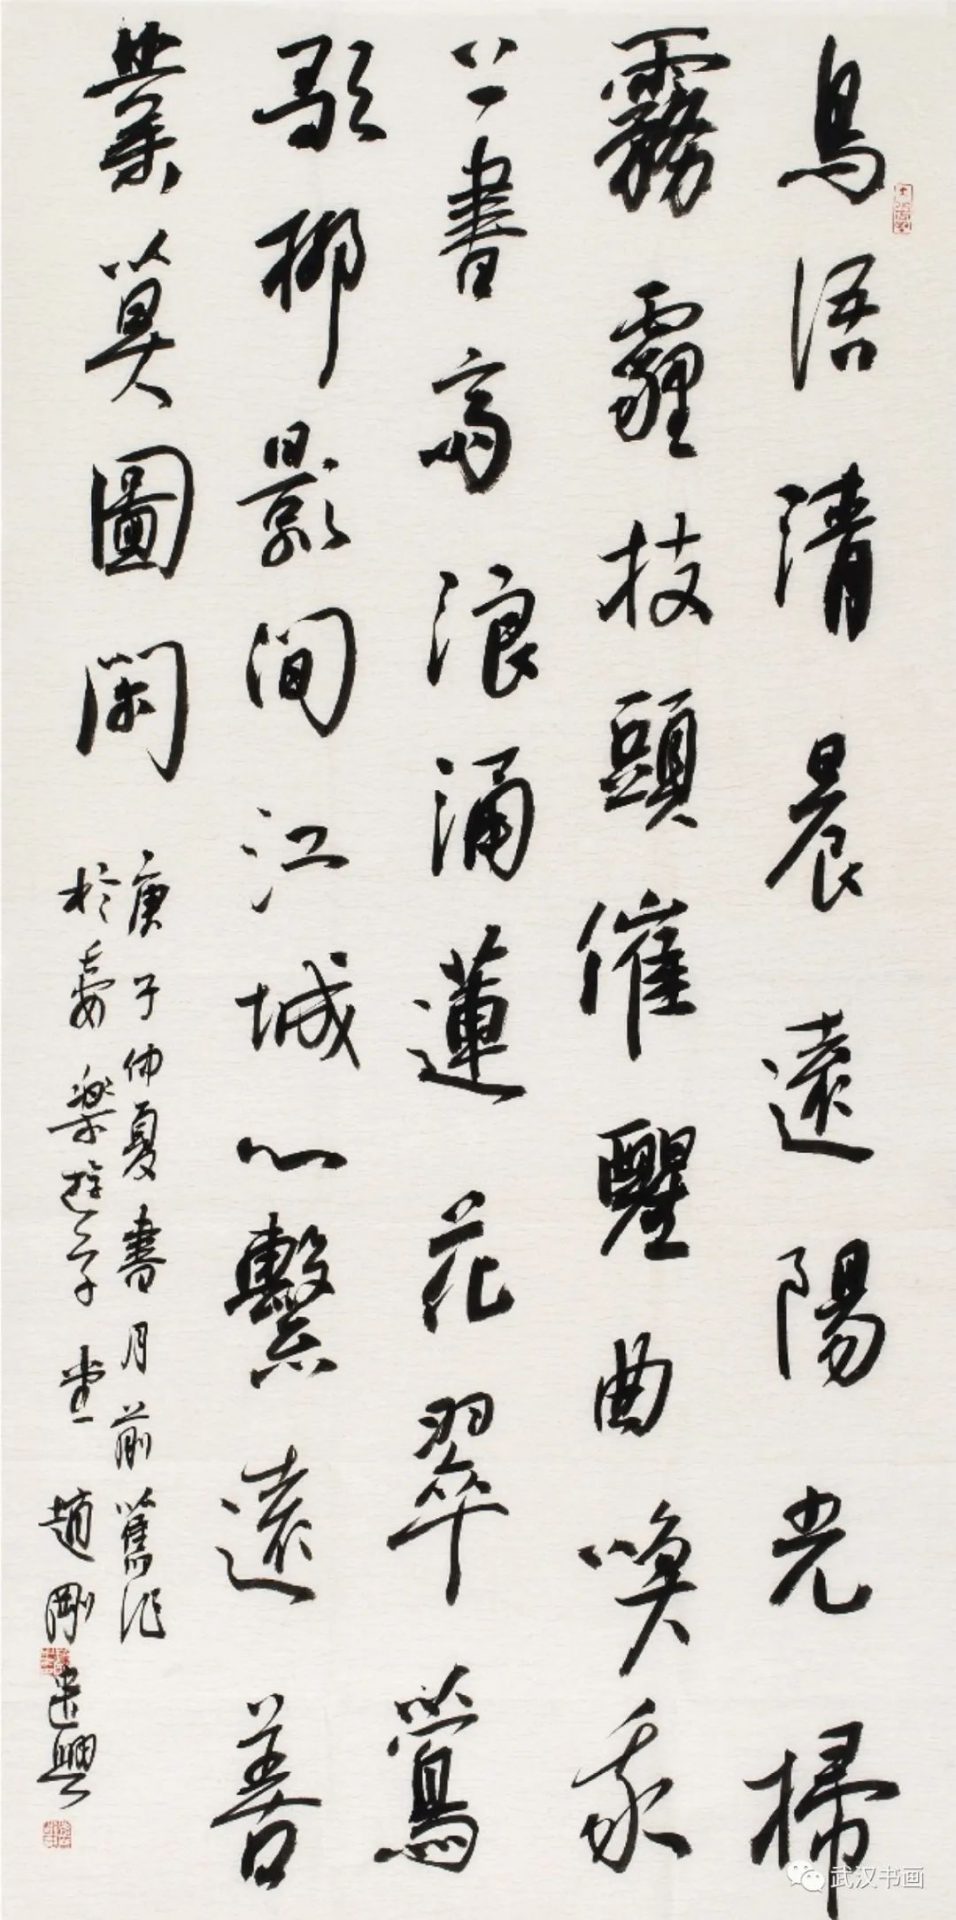 鳥語清晨遠陽光掃
霧霾枝頭催醒曲喚我
上書斋浪涌蓮花翠鶯
歌柳影间江城心繫遠善
業莫圖闲
庚子仲夏書月前舊作
於樂遊堂趙剛遣興
武汉书画